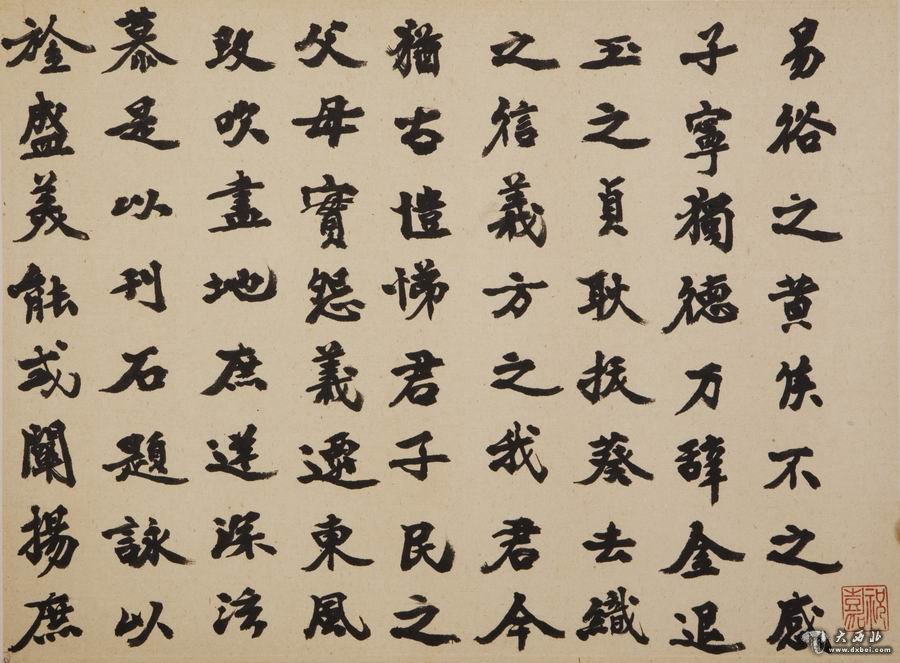 易俗之黄侯不之感
子寧獨德万辭金退
玉之貞耿振葵去織
之信義方之我君今
猶古愷悌君子民之
父母實怨義遷東風
改吹盡地庶送深法
慕是以刊石題詠以
旌盛美能或闡揚庶
祝嘉
大西北
www.dxbei.com